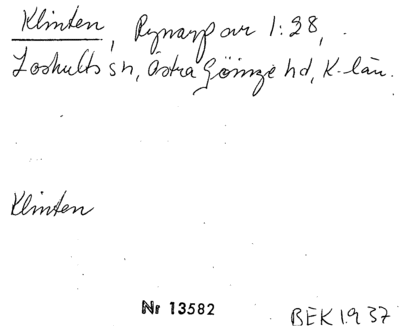 Klinten, Rynarp ar 1:28,
Loshults sn, Östra Göinge hd, K-län.
Klinten
Nr 13582
BEK 1937